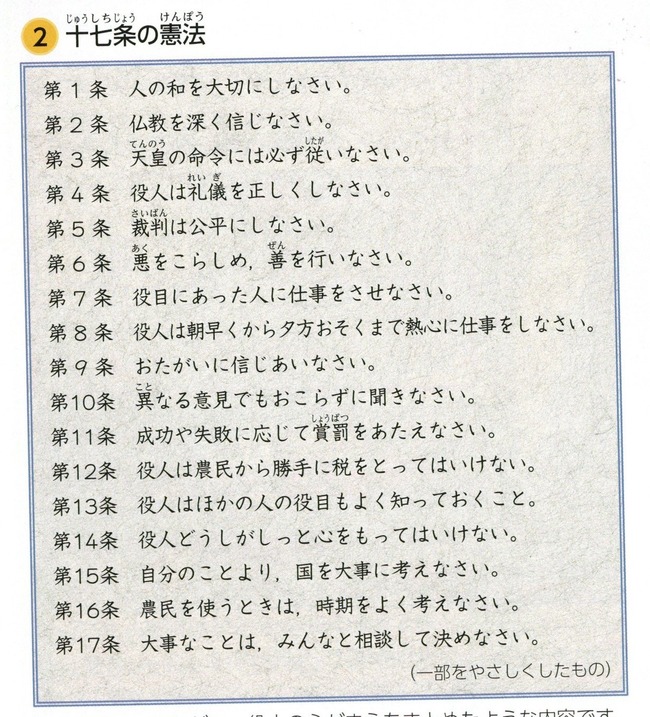 2 十七条の憲法
第1条 人の和を大切にしなさい。
第2条 仏教を深く信じなさい。
第3条 天皇の命令には必ず従いなさい。
第4条 役人は礼儀を正しくしなさい。
第5条 裁判は公平にしなさい。
第6条 悪をこらしめ，善を行いなさい。
第7条 役目にあった人に仕事をさせなさい。
第8条 役人は朝早くから夕方おそくまで熱心に仕事をしなさい。
第9条 おたがいに信じあいなさい。
第10条 異なる意見でもおこらずに聞きなさい。
第11条 成功や失敗に応じて賞罰をあたえなさい。
第12条 役人は農民から勝手に税をとってはいけない。
第13条 役人はほかの人の役目もよく知っておくこと。
第14条 役人どうしがしっと心をもってはいけない。
第15条 自分のことより，国を大事に考えなさい。
第16条 農民を使うときは，時期をよく考えなさい。
第17条 大事なことは，みんなと相談して決めなさい。
(一部をやさしくしたもの)